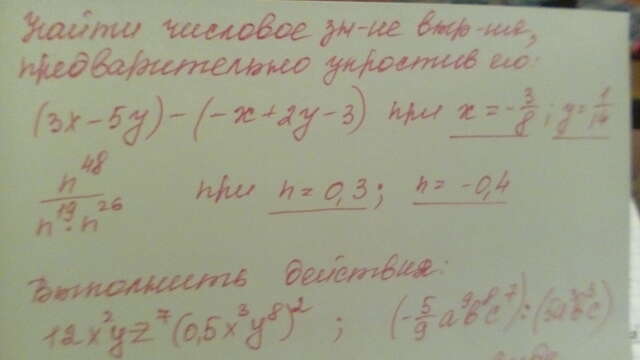 Найти числовое зн-ие выр-ия,
предварительно упростив его:
(3x-5y)-(-x+2y-3) при x=-3/8; y=1/14
n^48/(n^19·n^26) при n=0,3; n=-0,4
Выполнить действия:
12x^2yz^7(0,5x^3y^8)^2; (-5/9a^9b^8c^7):(5a^3b^3c)